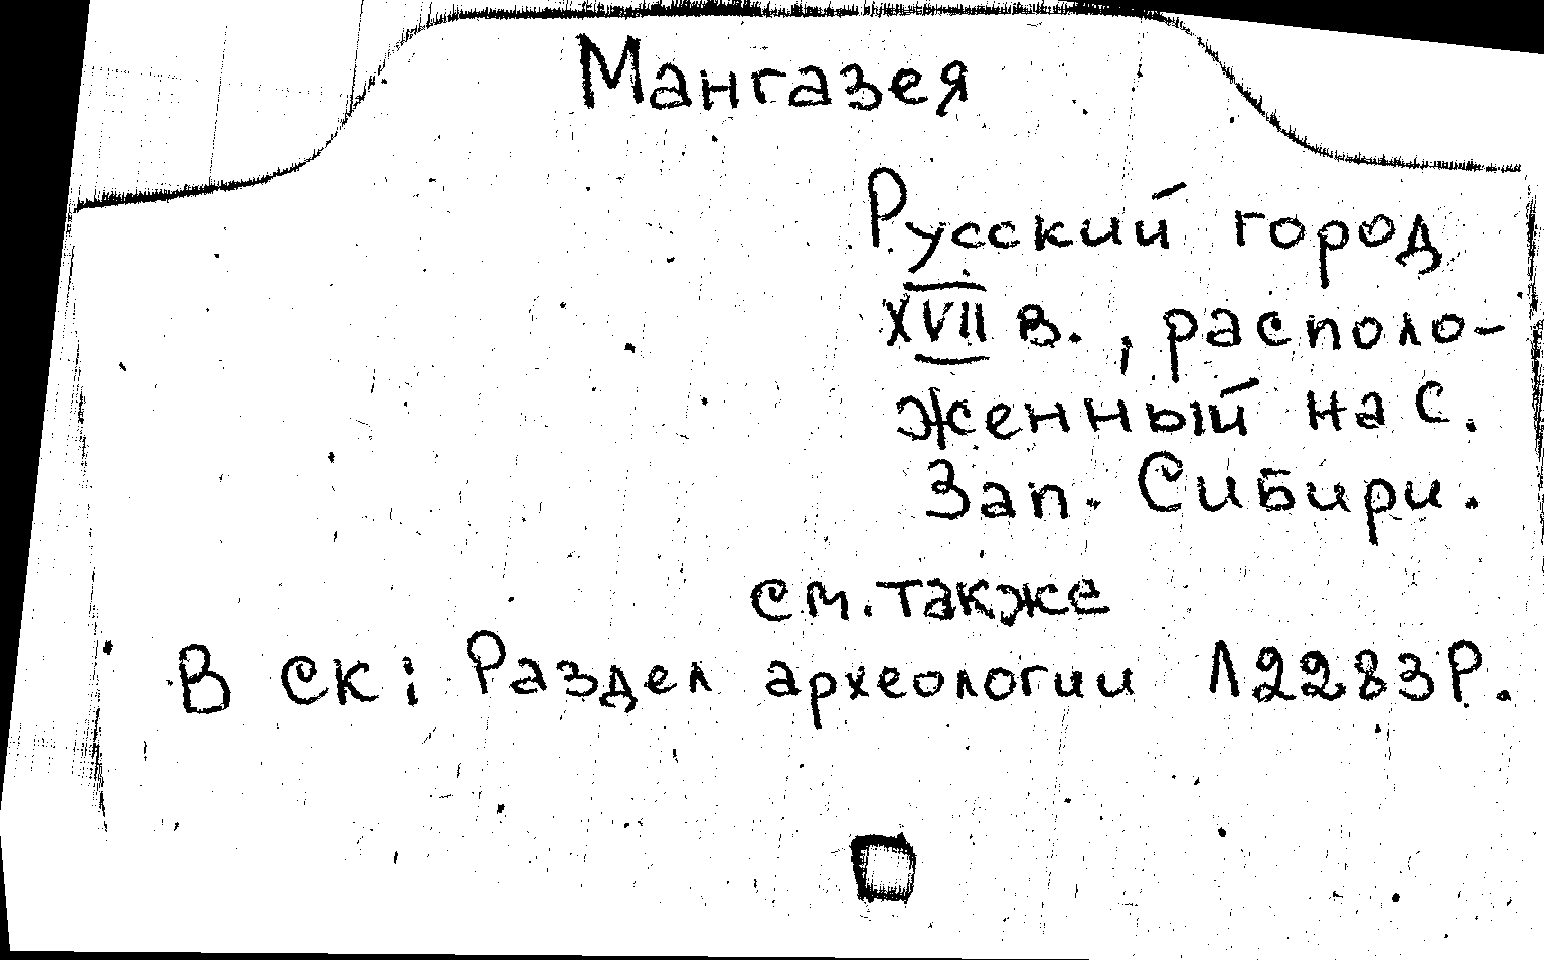 Мангазея
Русский город
XVII в., располо-
женный на С.
Зап. Сибири.
см. также
В СК: Раздел археологии Л2283Р.